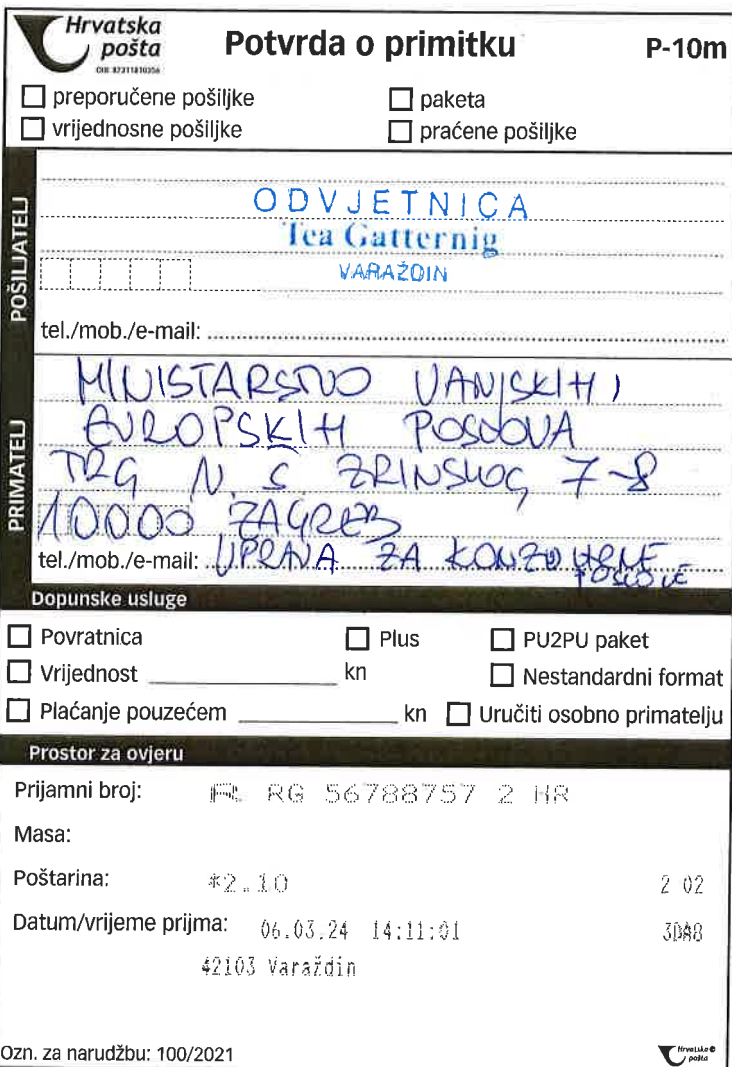 Hrvatska
pošta
OIB: 87311810356
Potvrda o primitku
P-10m
preporučene pošiljke
paketa
vrijednosne pošiljke
praćene pošiljke
POŠILJATELJ
ODVJETNICA
Tea Gatternig
VARAŽDIN
tel./mob./e-mail:
PRIMATELJ
MINISTARSTVO VANJSKIH I
EVROPSKIH POSLOVA
TRG N. S ZRINSKOG 7-8
10000 ZAGREB
tel./mob./e-mail: UPRAVA ZA KONZULARNE
POSLOVE
Dopunske usluge
Povratnica
Plus
PU2PU paket
Vrijednost kn
Nestandardni format
Plaćanje pouzećem kn
Uručiti osobno primatelju
Prostor za ovjeru
Prijamni broj: R RG 56788757 2 HR
Masa:
Poštarina: *2.10 2 02
Datum/vrijeme prijma: 06.03.24 14:11:01 3DA8
42103 Varaždin
Ozn. za narudžbu: 100/2021
Hrvatska
pošta